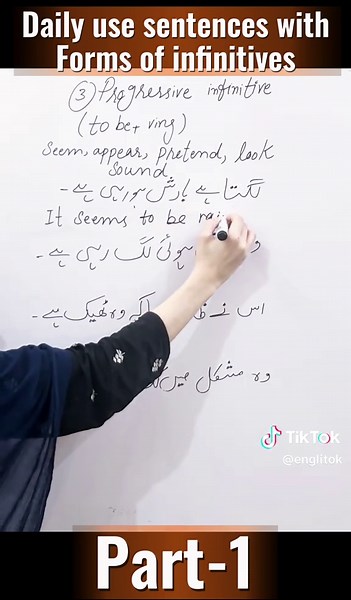 Daily use sentences with
Forms of infinitives
③ Progressive infinitive
(to be + ving)
Seem, appear, pretend, look
Sound
لگتا ہے بارش ہو رہی ہے -
It seems to be rai
ہوئی لگ رہی ہے -
اس نے کہ وہ ٹھیک ہے -
وہ مشکل میں
TikTok
@englitok
Part-1